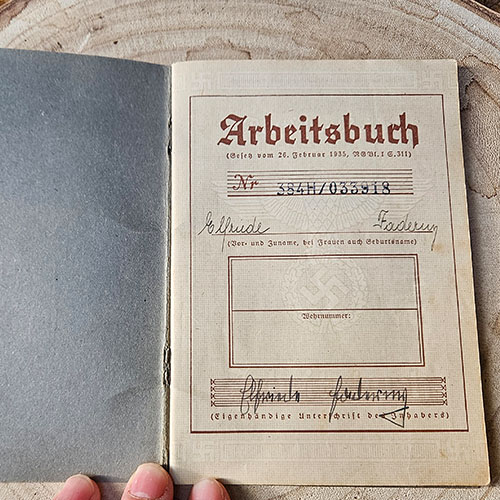 Arbeitsbuch
(Gesetz vom 26. Februar 1935, RGBl. I S. 311)
Nr 384H/033918
Elfriede
(Vor- und Zuname, bei Frauen auch Geburtsname)
Wehrnummer:
Elfriede
(Eigenhändige Unterschrift des Inhabers)